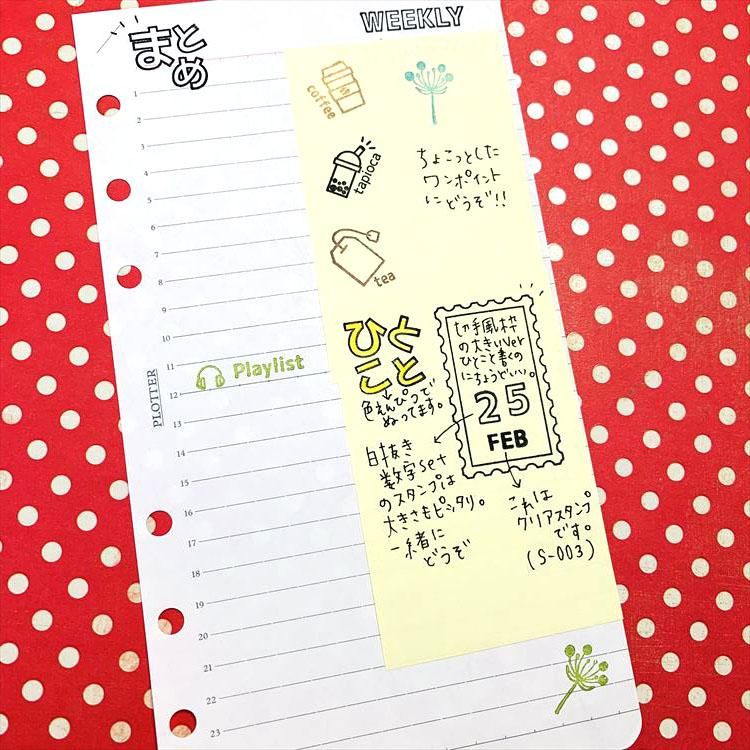 まとめ
WEEKLY
1
2
3
4
5
6
7
8
9
10
11
12
13
14
15
16
17
18
19
20
21
22
23
PLOTTER
coffee
tapioca
tea
ちょこっとした
ワンポイント
にどうぞ!!
Playlist
ひと
こと
色えんぴつで
ぬってます。
切手風枠
の大きいver
ひとこと書くの
にちょうどいい。
25
FEB
白抜き
数字set
のスタンプは
大きさもピッタリ。
一緒に
どうぞ
これは
クリアスタンプ
です。
(S-003)